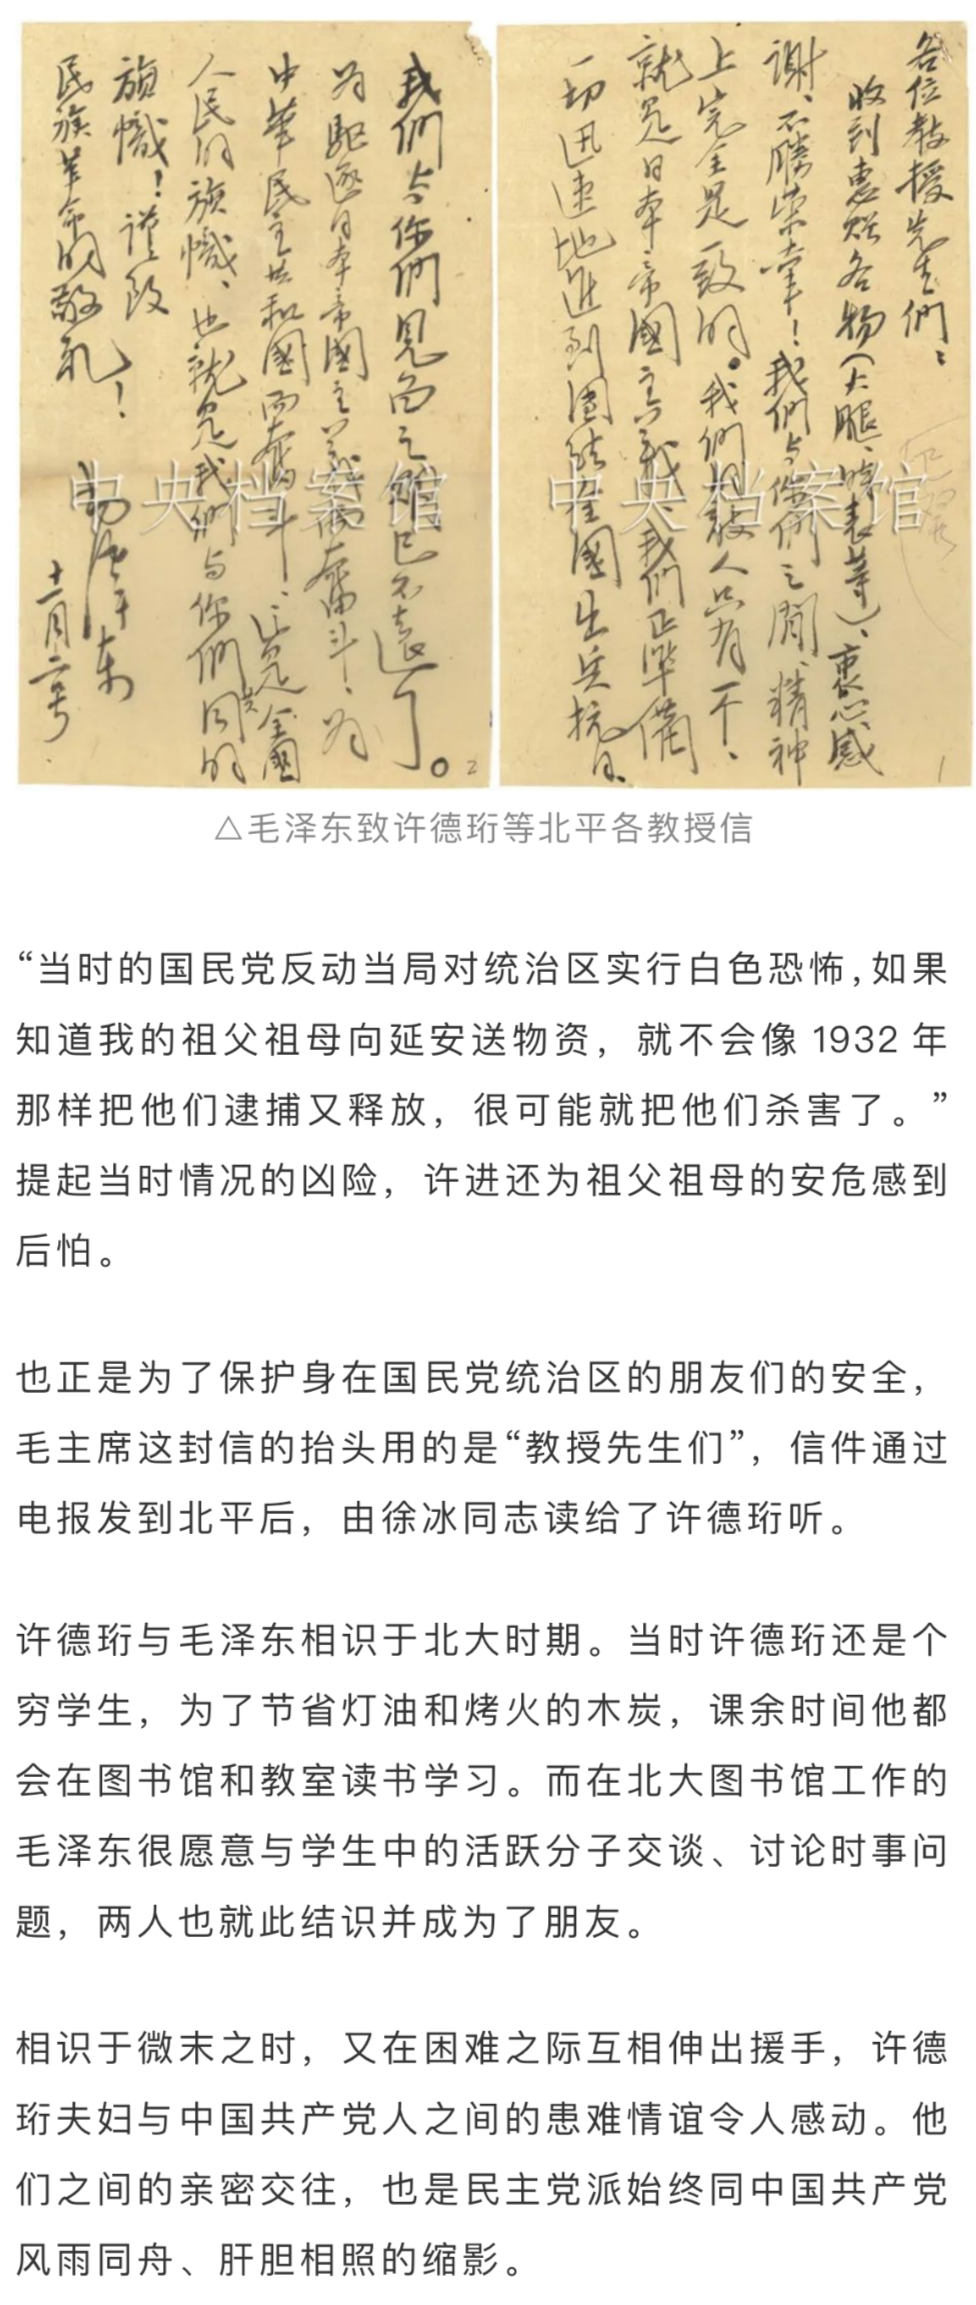 各位教授先生们：
收到惠赠各物（火腿、时表等）、衷心感
谢、不胜荣幸！我们与你们之间、精神
上完全是一致的。我们的敌人只有一个、
就是日本帝國主义、我们正準備
一切迅速地进到团结全國出兵抗日、
1
我们与你们見面之期已不远了。
为驱逐日本帝國主义而奮斗、为
中華民主共和國而奮斗、这是全國
人民的旗幟、也就是我们与你们共同的
旗幟！谨致
民族革命的敬礼！
毛泽东
十一月二号
2
中央档案馆
中央档案馆
△毛泽东致许德珩等北平各教授信
“当时的国民党反动当局对统治区实行白色恐怖,如果
知道我的祖父祖母向延安送物资，就不会像 1932 年
那样把他们逮捕又释放，很可能就把他们杀害了。”
提起当时情况的凶险，许进还为祖父祖母的安危感到
后怕。
也正是为了保护身在国民党统治区的朋友们的安全，
毛主席这封信的抬头用的是“教授先生们”，信件通过
电报发到北平后，由徐冰同志读给了许德珩听。
许德珩与毛泽东相识于北大时期。当时许德珩还是个
穷学生，为了节省灯油和烤火的木炭，课余时间他都
会在图书馆和教室读书学习。而在北大图书馆工作的
毛泽东很愿意与学生中的活跃分子交谈、讨论时事问
题，两人也就此结识并成为了朋友。
相识于微末之时，又在困难之际互相伸出援手，许德
珩夫妇与中国共产党人之间的患难情谊令人感动。他
们之间的亲密交往，也是民主党派始终同中国共产党
风雨同舟、肝胆相照的缩影。